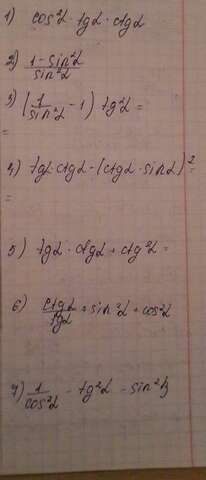 1) cos²α · tgα · ctgα
2) 1-sin²α / sin²α
3) (1/sin²α - 1) tg²α =
=
4) tgα·ctgα - (ctgα · sinα)² =
=
5) tgα · ctgα + ctg²α =
6) ctgα/tgα + sin²α + cos²α
7) 1/cos²α - tg²α - sin²α